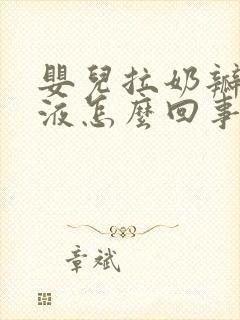 嬰兒拉奶瓣
液怎麼回事
章斌